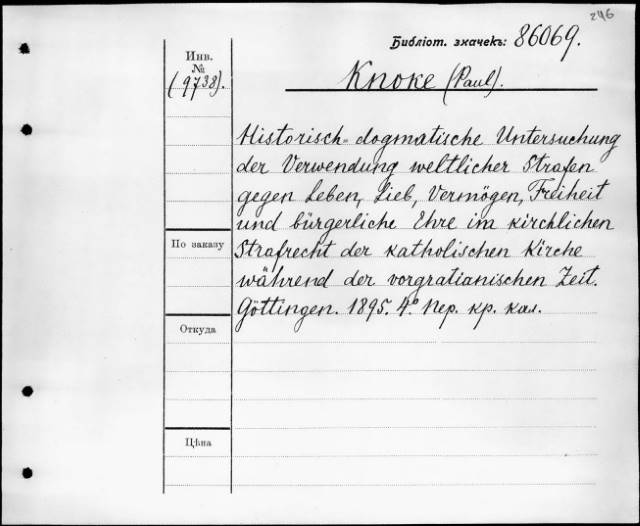 246
Библіот. значекъ: 86069.
Инв.
№
(9738).
Knoke (Paul).
Historisch-dogmatische Untersuchung
der Verwendung weltlicher Strafen
gegen Leben, Lieb, Vermögen, Freiheit
und bürgerliche Ehre im kirchlichen
По заказу
Strafrecht der katholischen Kirche
während der vorgratianischen Zeit.
Göttingen. 1895. 4° Пер. кр. кал.
Откуда
Цѣна